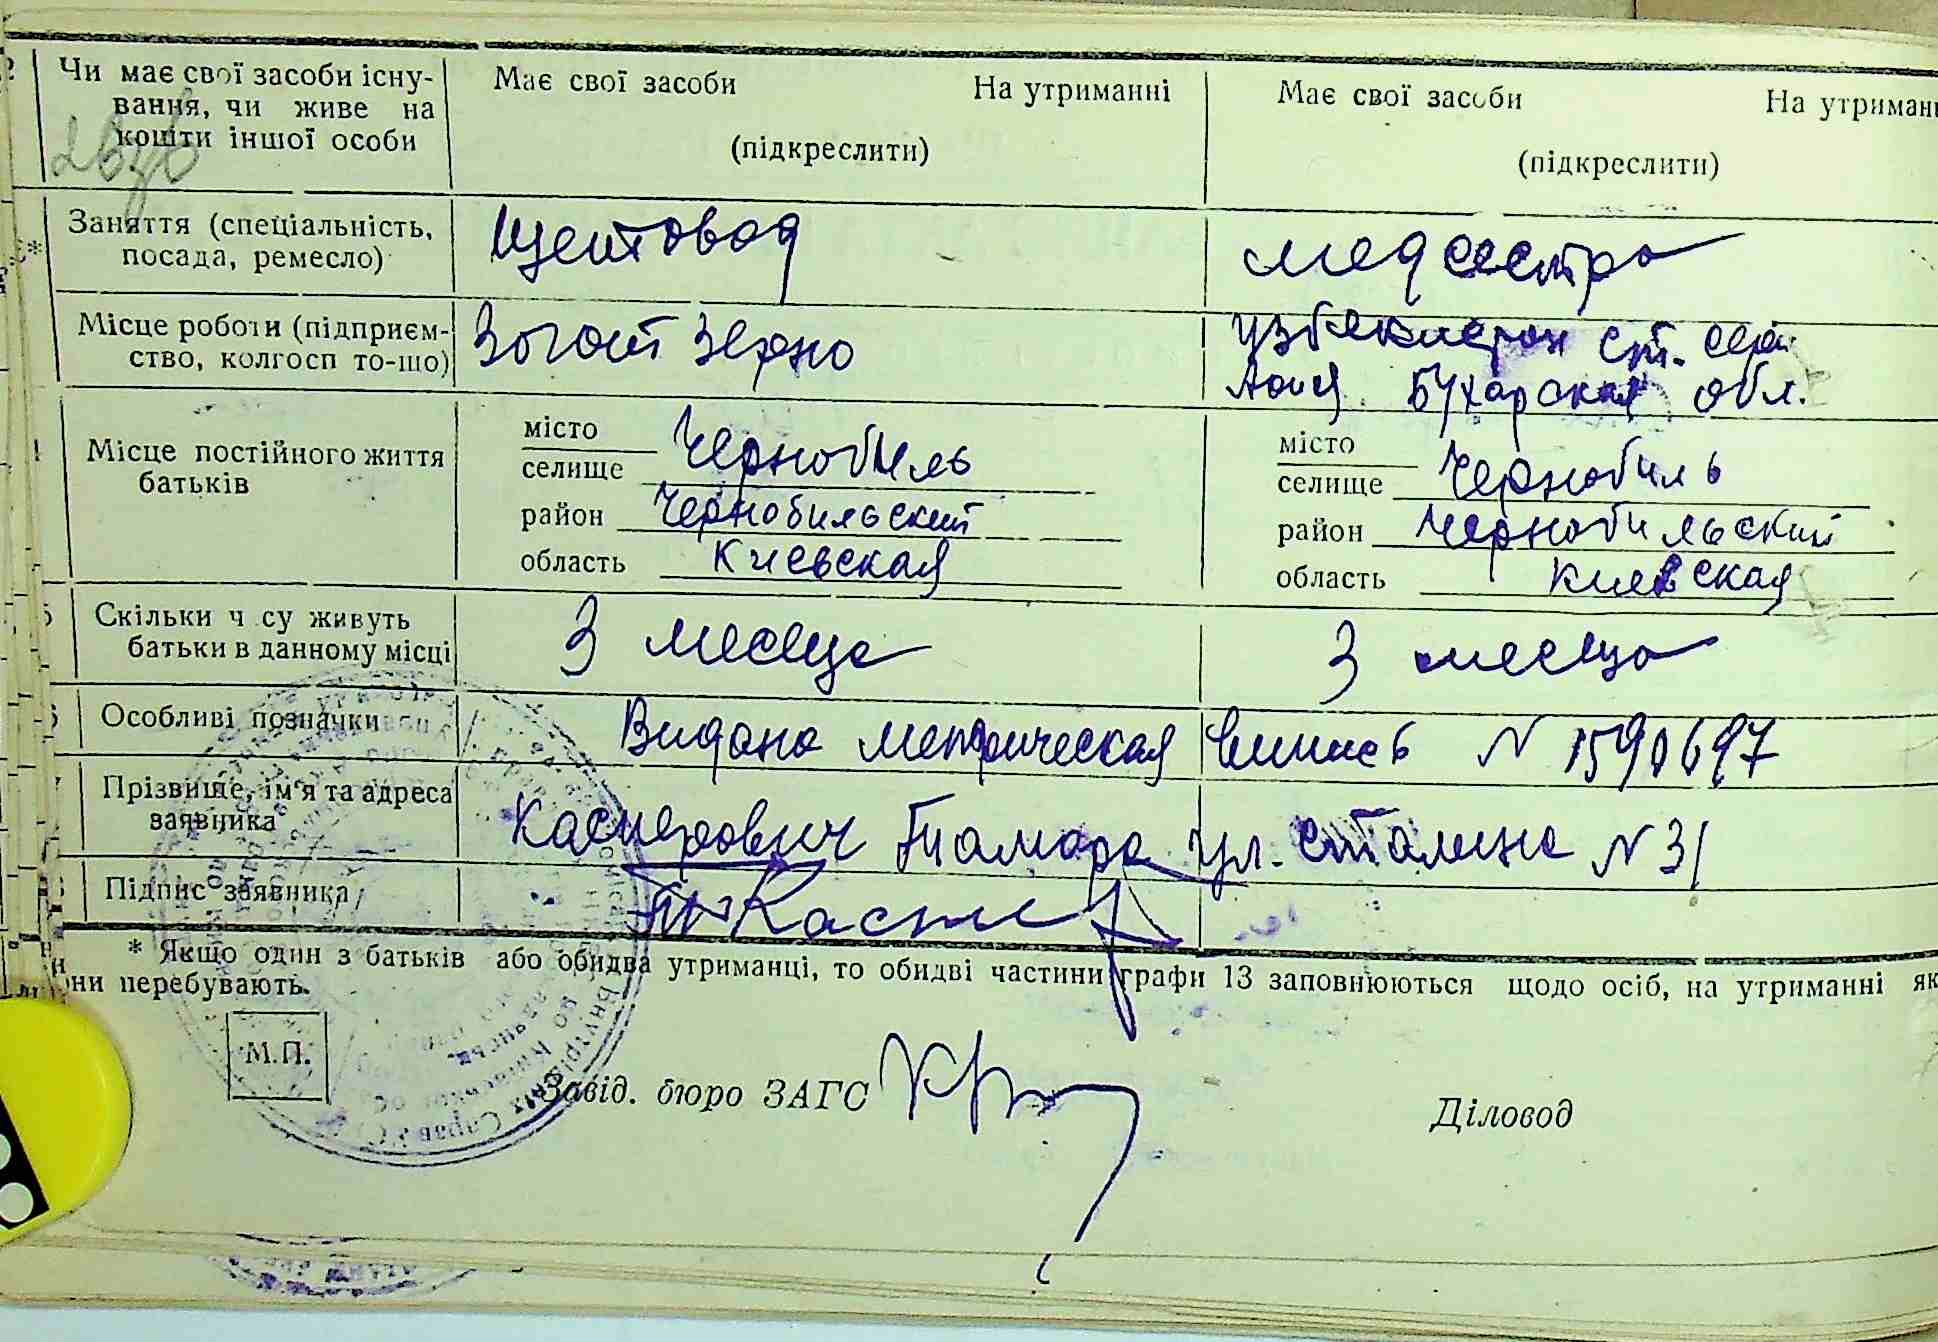 Чи має свої засоби існу-
вання, чи живе на
кошти іншої особи
Має свої засоби На утриманні
(підкреслити)
Має свої засоби На утриман
(підкреслити)
Заняття (спеціальність,
посада, ремесло)
Щетовод
медсестра
Місце роботи (підприєм-
ство, колгосп то-що)
Зогот Зерно
Узбекистан ст.
Бухарская обл.
Місце постійного життя
батьків
місто
селище Чернобиль
район Чернобильский
область Киевская
місто
селище Чернобиль
район Чернобильский
область Киевская
Скільки ч су живуть
батьки в данному місці
3 месяца
3 месяца
Особливі позначки
Видана метрическая випись N 1590697
Прізвище, ім'я та адреса
заявника
Касперович Тамара ул. Сталина N 31
Підпис заявника
* Якщо один з батьків або обидва утриманці, то обидві частини графи 13 заповнюються щодо осіб, на утриманні як
они перебувають.
М.П.
Завід. бюро ЗАГС
Діловод